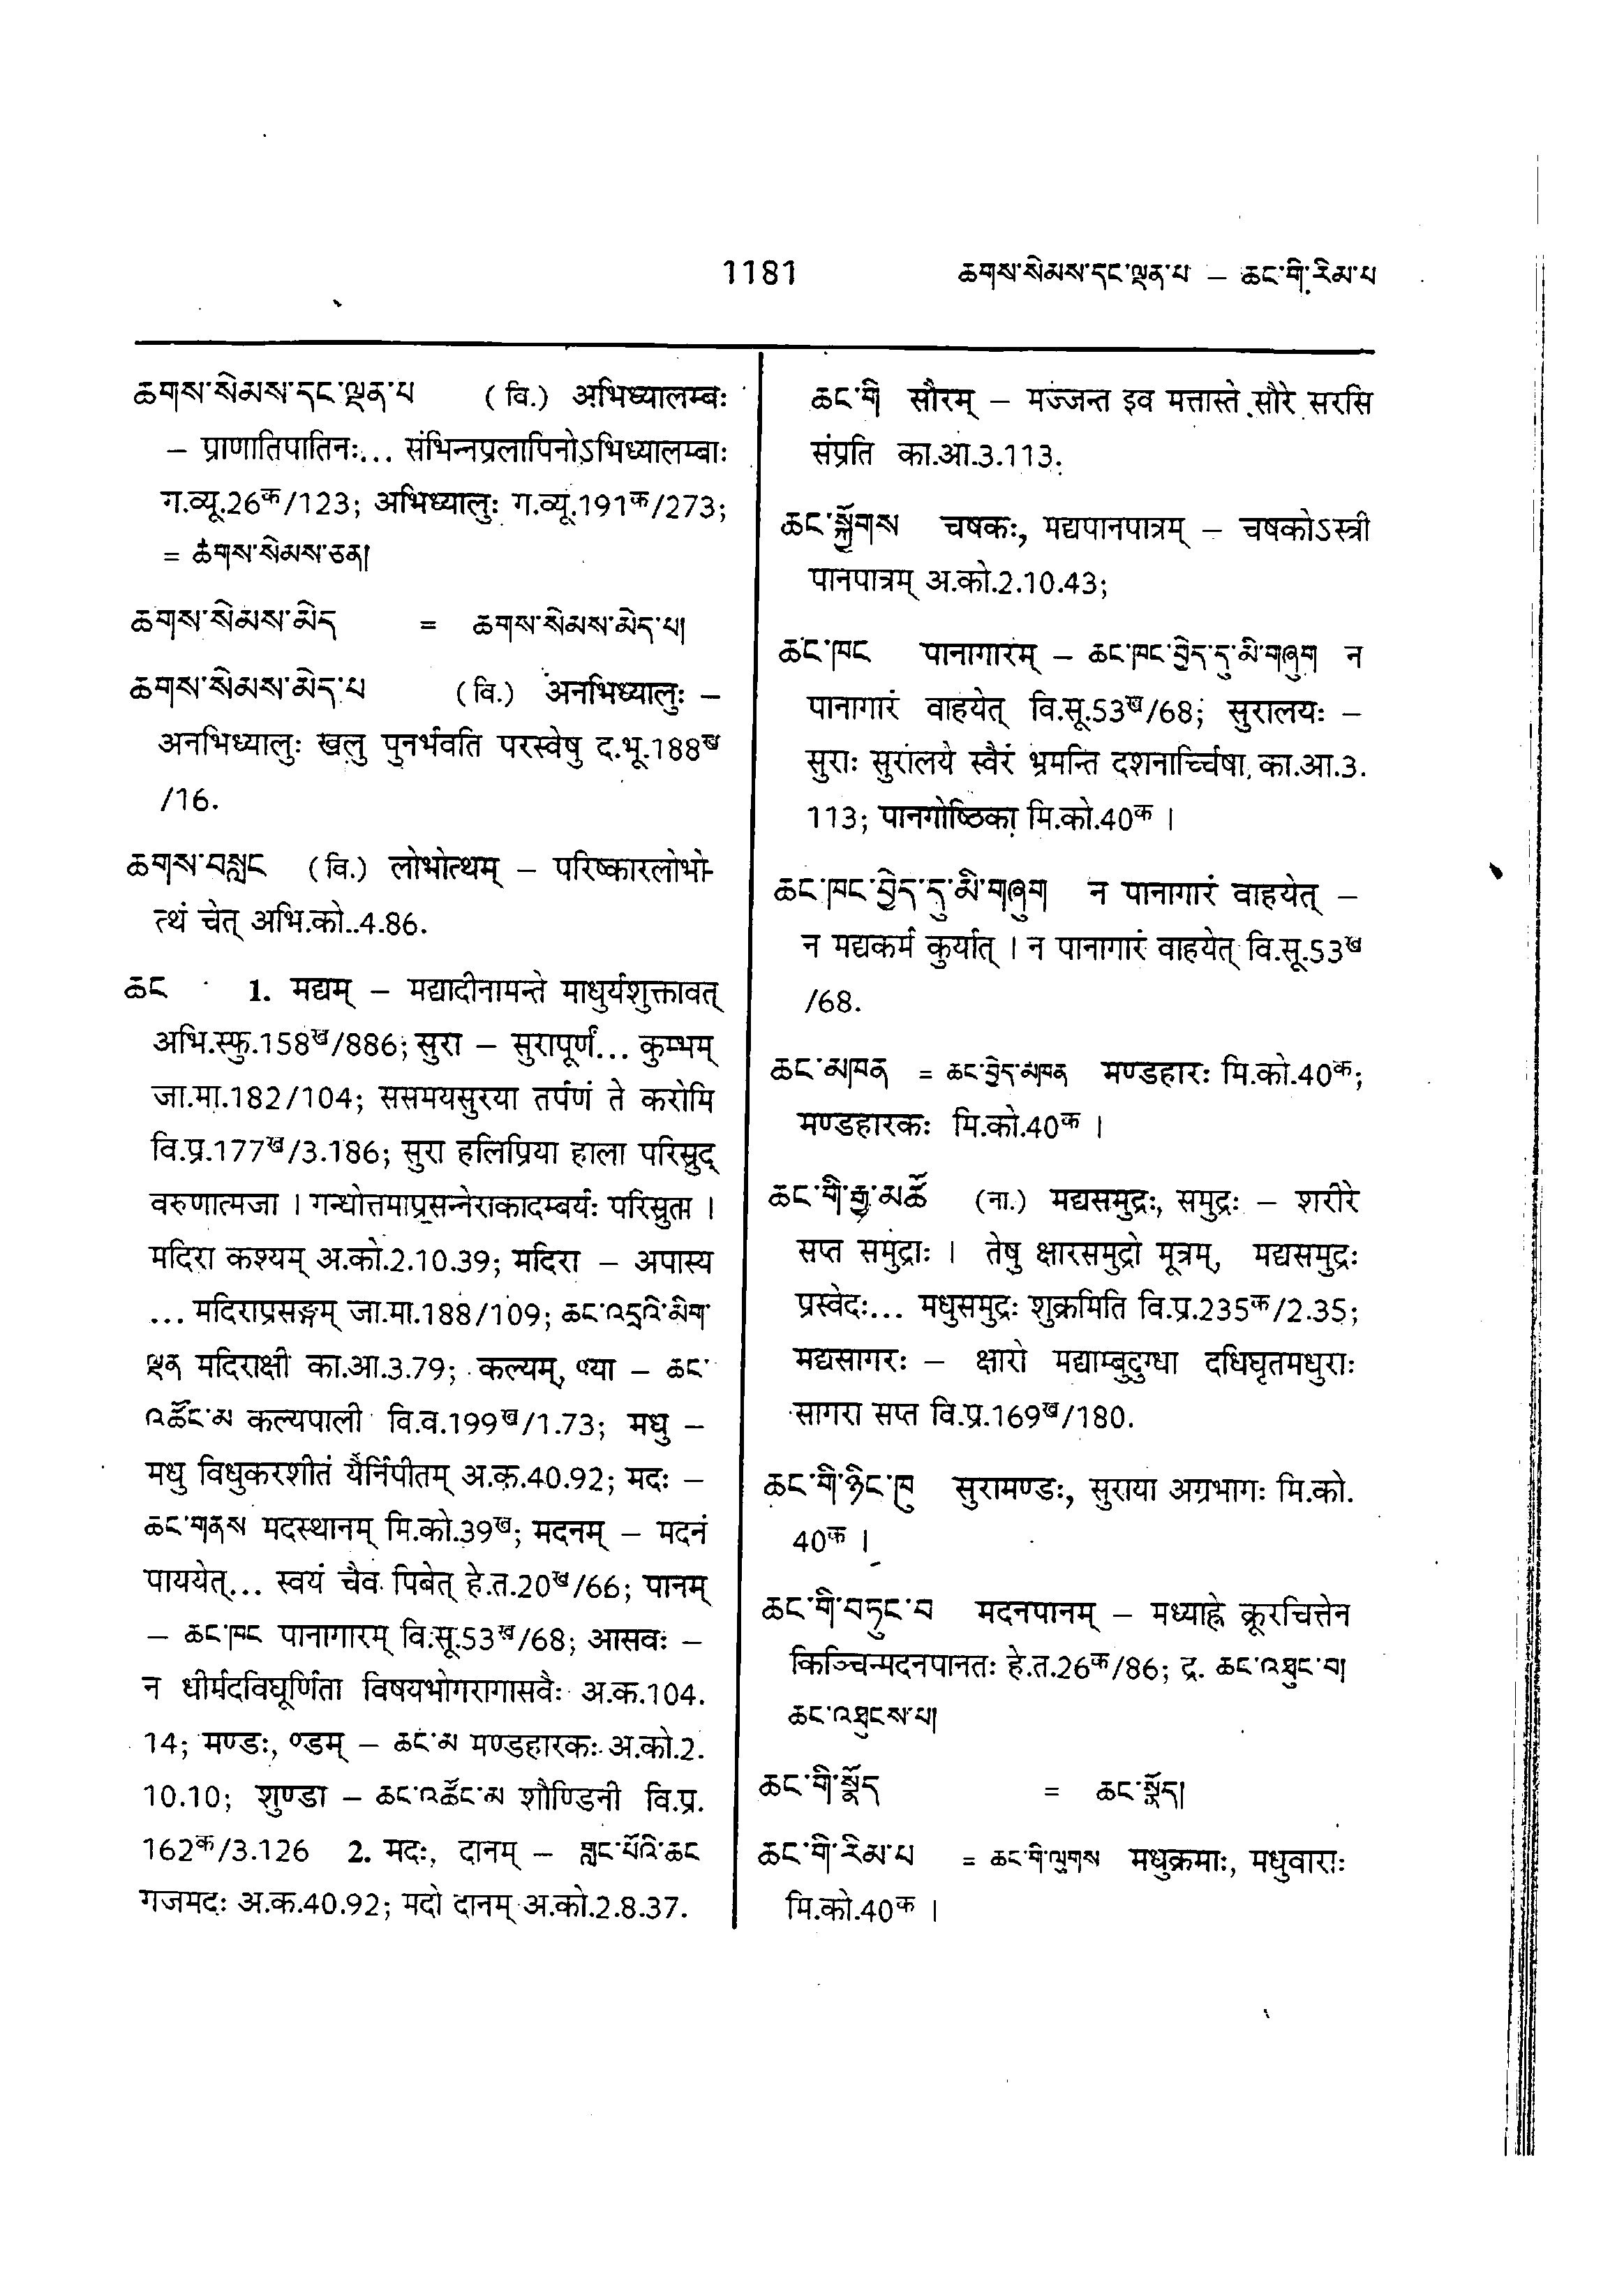 1181 ཆགས་སེམས་དང་ལྡན་པ – ཆང་གི་རིམ་པ
ཆགས་སེམས་དང་ལྡན་པ (वि.) अभिध्यालम्बः
– प्राणातिपातिनः... संभिन्नप्रलापिनोऽभिध्यालम्बाः
ग.व्यू.26क/123; अभिध्यालुः ग.व्यू.191क/273;
= ཆགས་སེམས་ཅན།
ཆགས་སེམས་མེད = ཆགས་སེམས་མེད་པ།
ཆགས་སེམས་མེད་པ (वि.) अनभिध्यालुः –
अनभिध्यालुः खलु पुनर्भवति परस्वेषु द.भू.188ख
/16.
ཆགས་བསླང (वि.) लोभोत्थम् – परिष्कारलोभो-
त्थं चेत् अभि.को..4.86.
ཆང 1. मद्यम् – मद्यादीनामन्ते माधुर्यशुक्तावत्
अभि.स्फु.158ख/886; सुरा – सुरापूर्णं... कुम्भम्
जा.मा.182/104; ससमयसुरया तर्पणं ते करोमि
वि.प्र.177ख/3.186; सुरा हलिप्रिया हाला परिस्रुद्
वरुणात्मजा । गन्धोत्तमाप्रसन्नेराकादम्बर्यः परिस्रुता ।
मदिरा कश्यम् अ.को.2.10.39; मदिरा – अपास्य
... मदिराप्रसङ्गम् जा.मा.188/109; ཆང་འདྲའི་མིག་
ལྡན मदिराक्षी का.आ.3.79; कल्यम्, ०ल्या – ཆང་
འཚོང་མ कल्यपाली वि.व.199ख/1.73; मधु –
मधु विधुकरशीतं यैर्निपीतम् अ.क.40.92; मदः –
ཆང་གནས मदस्थानम् मि.को.39ख; मदनम् – मदनं
पाययेत्... स्वयं चैव पिबेत् हे.त.20ख/66; पानम्
– ཆང་ཁང पानागारम् वि.सू.53ख/68; आसवः –
न धीर्मदविघूर्णिता विषयभोगरागासवैः अ.क.104.
14; मण्डः, ०डम् – ཆང་མ मण्डहारकः अ.को.2.
10.10; शुण्डा – ཆང་འཚོང་མ शौण्डिनी वि.प्र.
162क/3.126 2. मदः, दानम् – གླང་པོའི་ཆང
गजमदः अ.क.40.92; मदो दानम् अ.को.2.8.37.
ཆང་གི सौरम् – मज्जन्त इव मत्तास्ते सौरे सरसि
संप्रति का.आ.3.113.
ཆང་སྐྱོགས चषकः, मद्यपानपात्रम् – चषकोऽस्त्री
पानपात्रम् अ.को.2.10.43;
ཆང་ཁང पानागारम् – ཆང་ཁང་བྱེད་དུ་མི་གཞུག न
पानागारं वाहयेत् वि.सू.53ख/68; सुरालयः –
सुराः सुरालये स्वैरं भ्रमन्ति दशनार्च्चिषा का.आ.3.
113; पानगोष्ठिका मि.को.40क ।
ཆང་ཁང་བྱེད་དུ་མི་གཞུག न पानागारं वाहयेत् –
न मद्यकर्म कुर्यात् । न पानागारं वाहयेत् वि.सू.53ख
/68.
ཆང་མཁན = ཆང་བྱེད་མཁན मण्डहारः मि.को.40क;
मण्डहारकः मि.को.40क ।
ཆང་གི་རྒྱ་མཚོ (ना.) मद्यसमुद्रः, समुद्रः – शरीरे
सप्त समुद्राः । तेषु क्षारसमुद्रो मूत्रम्, मद्यसमुद्रः
प्रस्वेदः... मधुसमुद्रः शुक्रमिति वि.प्र.235क/2.35;
मद्यसागरः – क्षारो मद्याम्बुदुग्धा दधिघृतमधुराः
सागरा सप्त वि.प्र.169ख/180.
ཆང་གི་ཉིང་ཁུ सुरामण्डः, सुराया अग्रभागः मि.को.
40क ।
ཆང་གི་བཏུང་བ मदनपानम् – मध्याह्ने क्रूरचित्तेन
किञ्चिन्मदनपानतः हे.त.26क/86; द्र. ཆང་འཐུང་བ།
ཆང་འཐུངས་པ།
ཆང་གི་སྣོད = ཆང་སྣོད།
ཆང་གི་རིམ་པ = ཆང་གི་ལུགས मधुक्रमाः, मधुवाराः
मि.को.40क ।